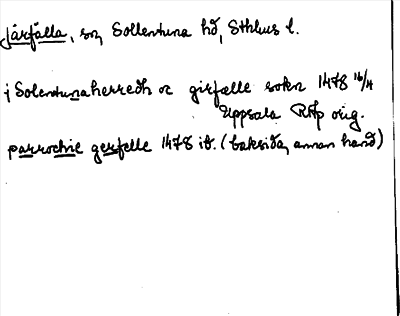 Järfälla, sn, Sollentuna hd, Sthlms l.
j Solentunaherredh oc girfælle sokn 1478 16/4
Uppsala RAp orig.
parrochie gerfelle 1478 ib. (baksida, annan hand)